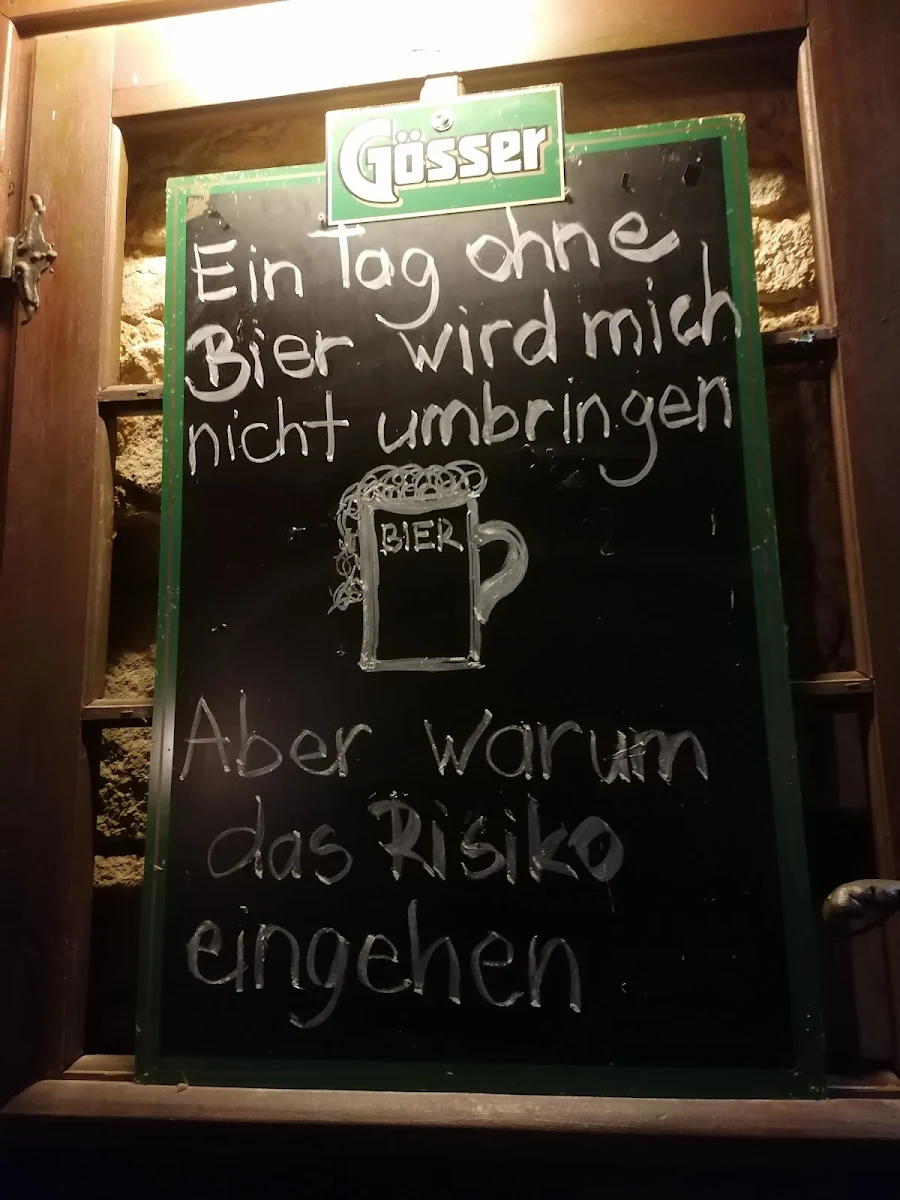 Gösser
Ein Tag ohne
Bier wird mich
nicht umbringen
BIER
Aber warum
das Risiko
eingehen